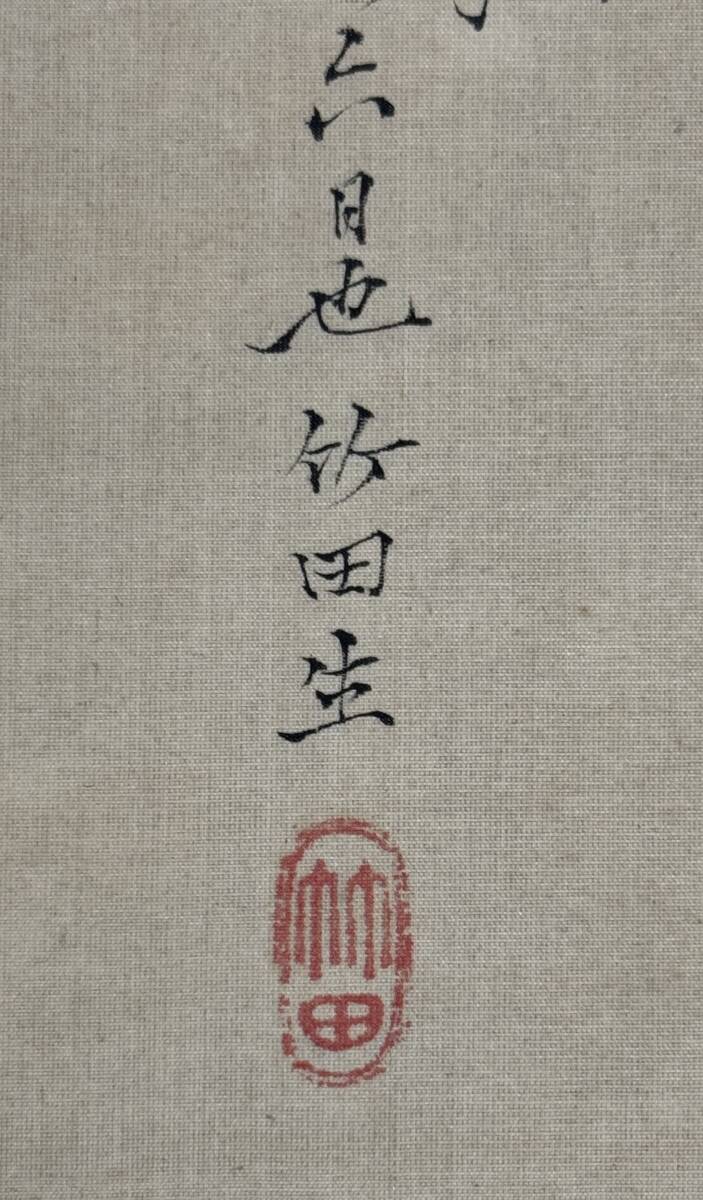 六日也竹田生
竹田